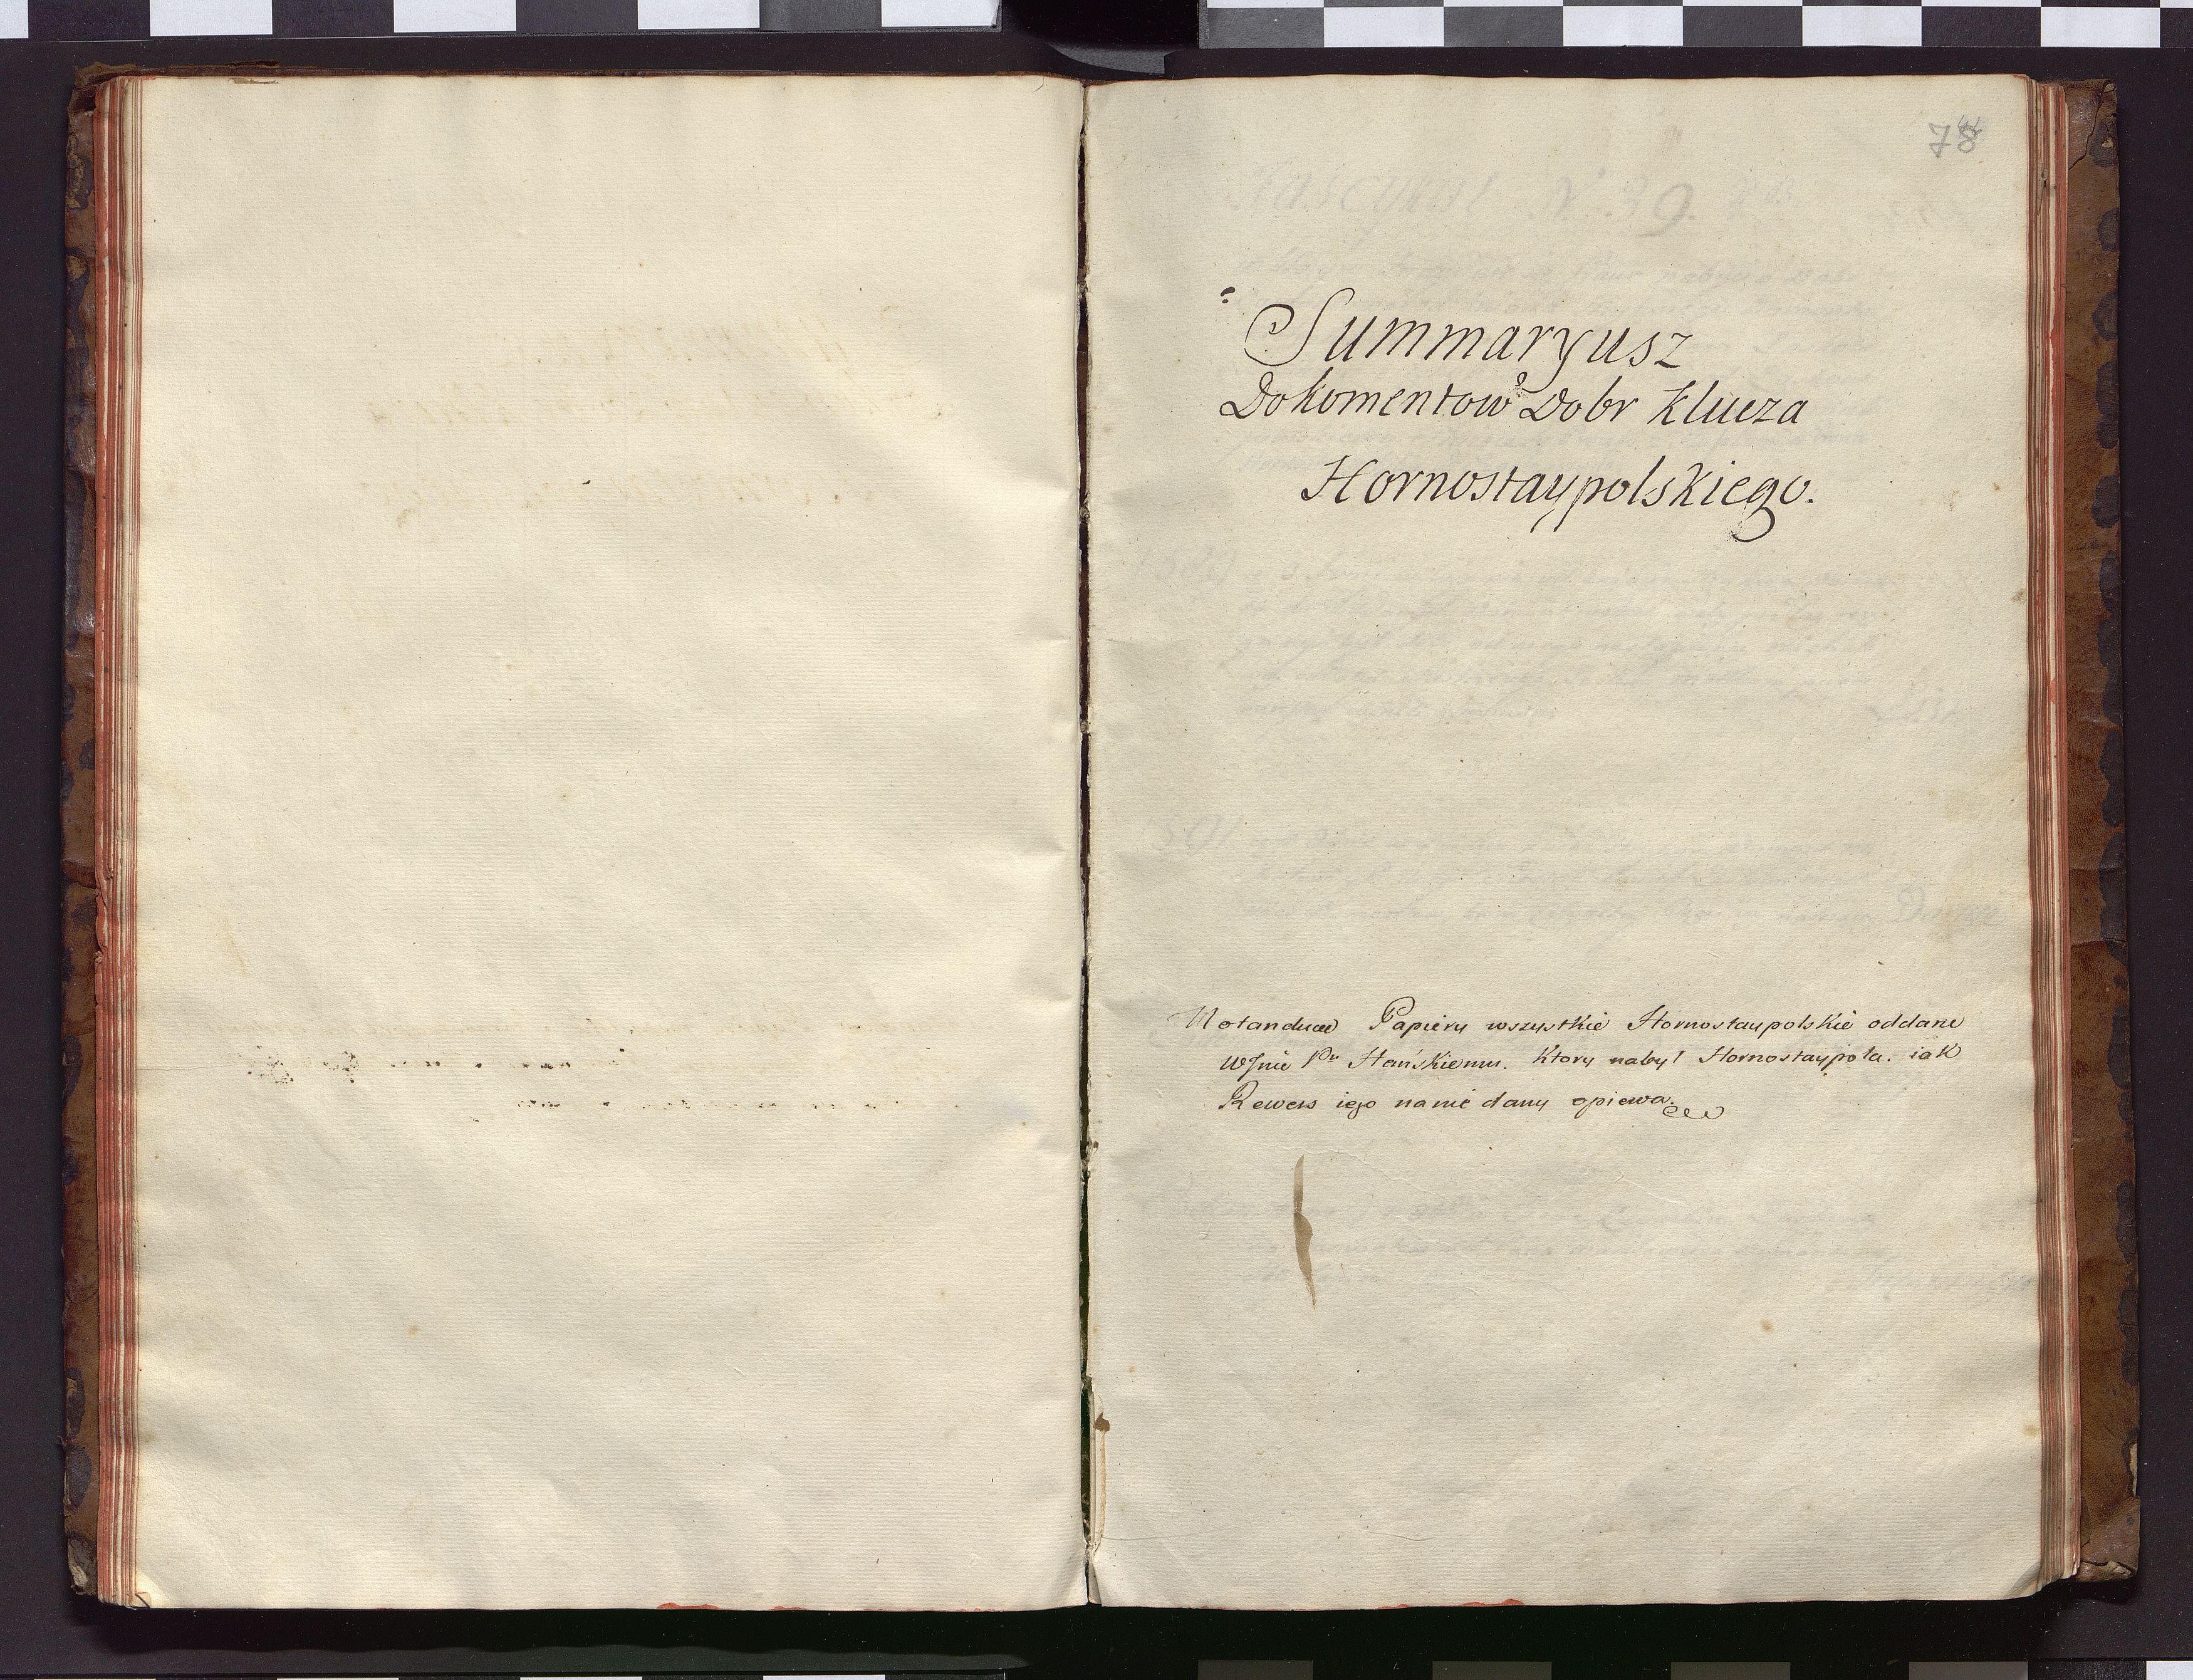 78
Summaryusz
Dokomentow Dobr Klucza
Hornostaypolskiego.
Notandum Papiery wszystkie Hornostaypolskie oddane
Hańskiemu. Ktory nabył Hornostaypola. iak
Rewers iego na nie dany opiewa.